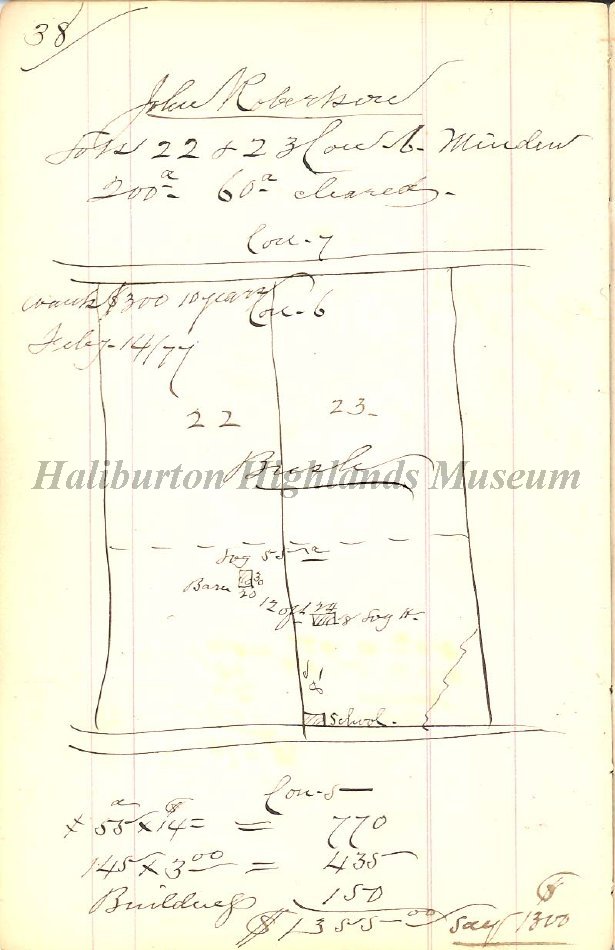 38
John Robertson
Lots 22 & 23 Con. 6. Minden
200a 60a cleared.
Con. 7
wants $300 10 years
Con. 6
July 14/77
22 23.
Haliburton Highlands Museum
Bush
Log 55 a
Barn 30
20
18 24
Log H.
School.
Con. 5
x 55a x $14 = 770
145 x 3 00 = 435
Buildings 150
$1355 00 say $1300